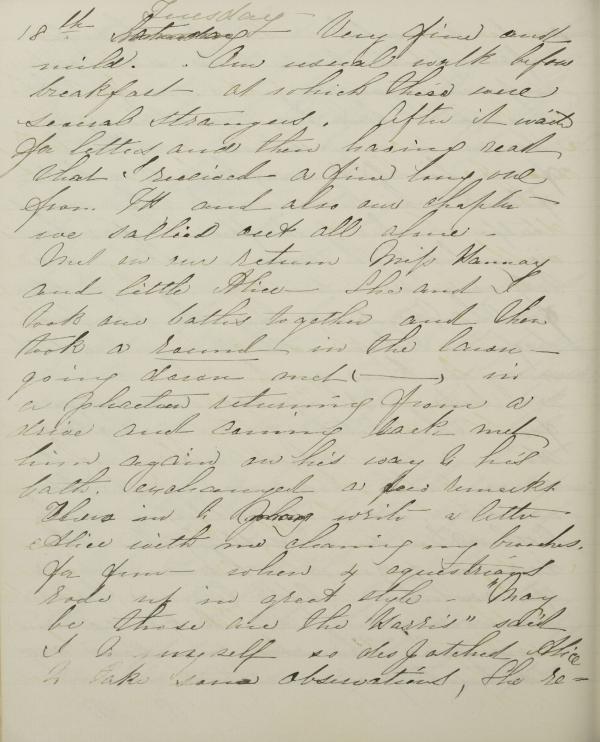 Tuesday
18th Saturday Very fine and
mild. . Our usual walk before
breakfast at which there were
several strangers. After it waited
for letters and then having read
that I received a fine long one
from TH and also our chapter
we sallied out all alone -
Met on our return Miss Hannay
and little Alice - She and I
took our baths together and then
took a round in the lawn -
going down met (———) in
a phaeton returning from a
drive and coming back met
him again on his way to his
bath. exchanged a few remarks
Then in to write a letter
Alice with me cleaning my brooches.
for fun - when 4 equestrians
rode up in great style - "May
be those are the Harris" said
I to myself so despatched Alice
to take some observations, She re=